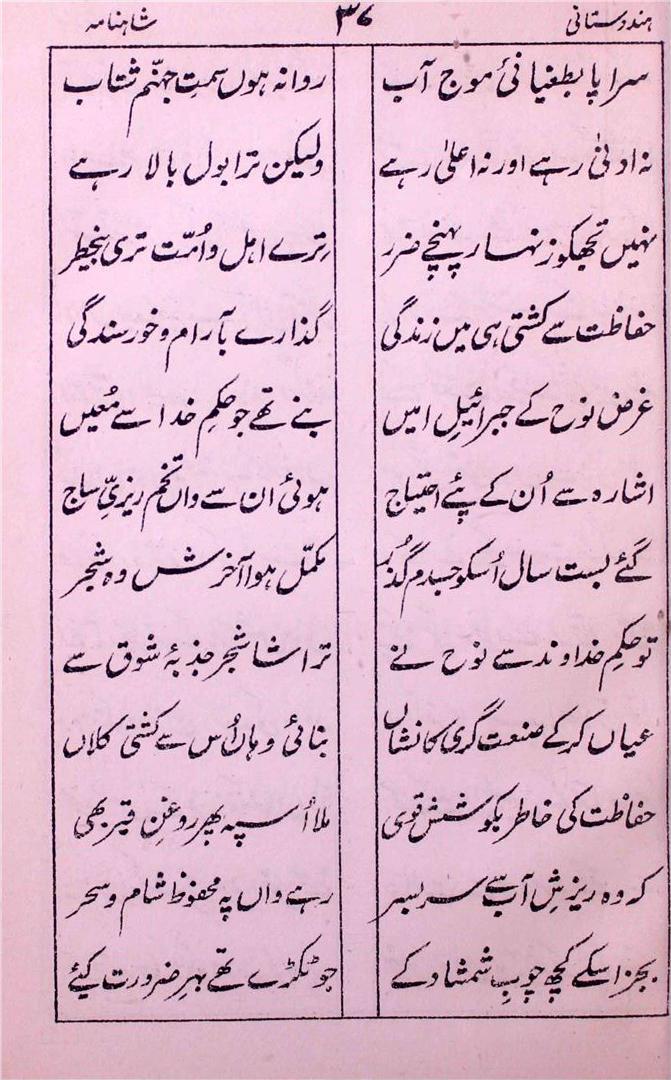 ہندوستانی ۳۷ شاہنامہ
سراپا بطغیانئ موج آب روانہ ہوں سمتِ جہنّم شتاب
نہ ادنیٰ رہے اور نہ اعلیٰ رہے ولیکن ترا بول بالا رہے
نہیں تجھکو زنہار پہنچے ضرر ترے اہل و اُمّت تری بیخطر
حفاظت سے کشتی ہی میں زندگی گذارے بآرام و خورسندگی
غرض نوح کے جبرائیلِ امیں بنے تھے جو حکمِ خدا سے مُعیں
اشارہ سے اُن کے پئے احتیاج ہوئی ان سے واں تخم ریزیِّ ساج
گئے بست سال اُسکو جسدم گذر مکمّل ہوا آخرش وہ شجر
تو حکمِ خداوند سے نوح نے تراشا شجر جذبۂ شوق سے
عیاں کرکے صنعت گری کا نشاں بنائی وہاں اُس سے کشتی کلاں
حفاظت کی خاطر بکوشش قوی ملا اُسپہ پھر روغنِ قیر بھی
کہ وہ ریزشِ آب سے سربسر رہے واں پہ محفوظ شام و سحر
بجز اسکے کچھ چوبِ شمشاد کے جو ٹکڑے تھے بہرِ ضرورت کیئے